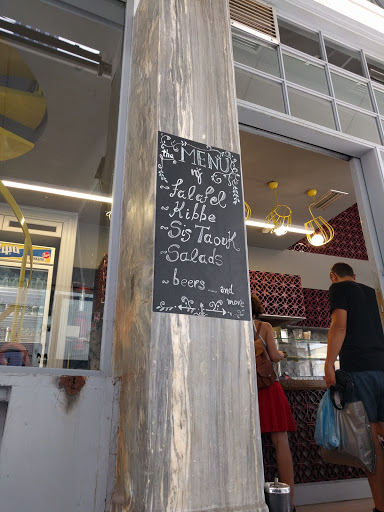 the MENU
of
~ Falafel
~ Kibbe
~ Sis Taouk
~ Salads
~ beers .... and more